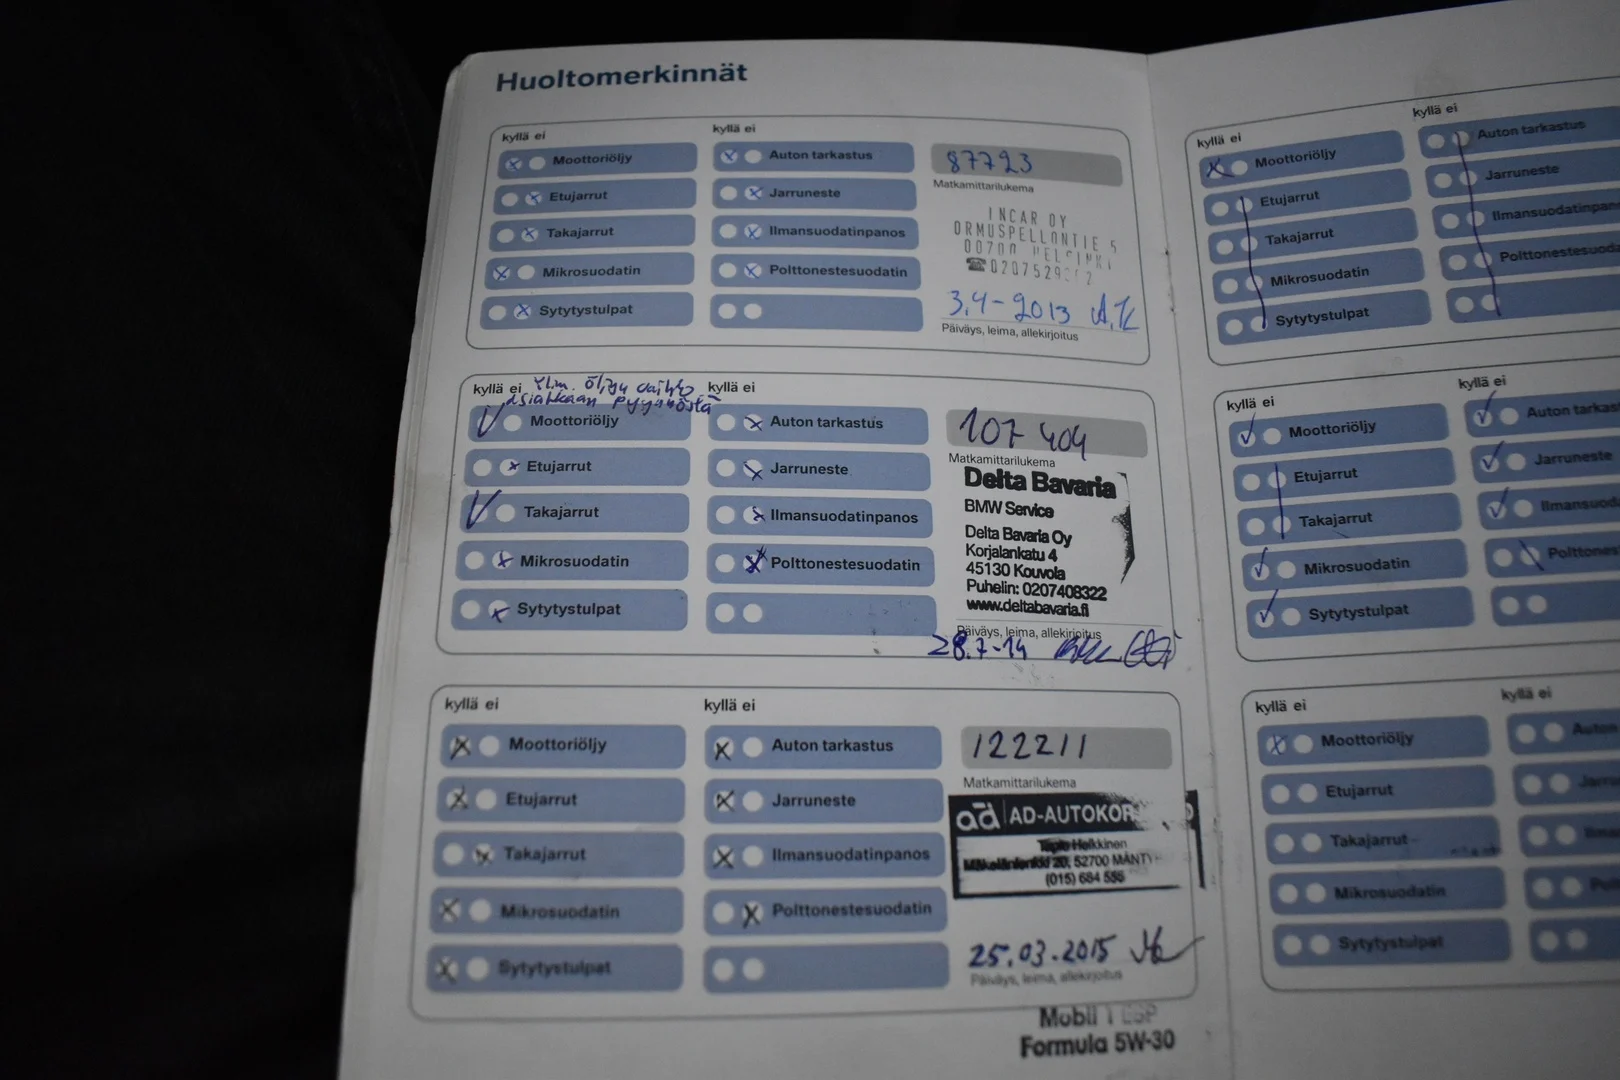 Huoltomerkinnät
kyllä ei
Moottoriöljy
Etujarrut
Takajarrut
Mikrosuodatin
Sytytystulpat
kyllä ei
Auton tarkastus
Jarruneste
Ilmansuodatinpanos
Polttonestesuodatin
87723
Matkamittarilukema
INCAR OY
ORMUSPELLONTIE 5
00700 HELSINKI
3.4-2013 A.K
Päiväys, leima, allekirjoitus
kyllä ei
Ylim. öljyn vaihto
asiakkaan pyynnöstä
Moottoriöljy
Etujarrut
Takajarrut
Mikrosuodatin
Sytytystulpat
kyllä ei
Auton tarkastus
Jarruneste
Ilmansuodatinpanos
Polttonestesuodatin
107 404
Matkamittarilukema
Delta Bavaria
BMW Service
Delta Bavaria Oy
Korjalankatu 4
45130 Kouvola
Puhelin: 0207408322
www.deltabavaria.fi
Päiväys, leima, allekirjoitus
28.7-14
kyllä ei
Moottoriöljy
Etujarrut
Takajarrut
Mikrosuodatin
Sytytystulpat
kyllä ei
Auton tarkastus
Jarruneste
Ilmansuodatinpanos
Polttonestesuodatin
122211
Matkamittarilukema
ad AD-AUTOKOR
Heikkinen
20, 52700 MÄNTY
(015) 684 556
25.03.2015
Päiväys, leima, allekirjoitus
Mobil 1 ESP
Formula 5W-30
kyllä ei
Moottoriöljy
Etujarrut
Takajarrut
Mikrosuodatin
Sytytystulpat
kyllä ei
Auton tarkastus
Jarruneste
Ilmansuodatinpan
Polttonestesuoda
kyllä ei
Moottoriöljy
Etujarrut
Takajarrut
Mikrosuodatin
Sytytystulpat
kyllä ei
Auton tarkas
Jarruneste
Ilmansuod
Polttones
kyllä ei
Moottoriöljy
Etujarrut
Takajarrut
Mikrosuodatin
Sytytystulpat
kyllä ei
Auto
Jarru
Ilma
Pol